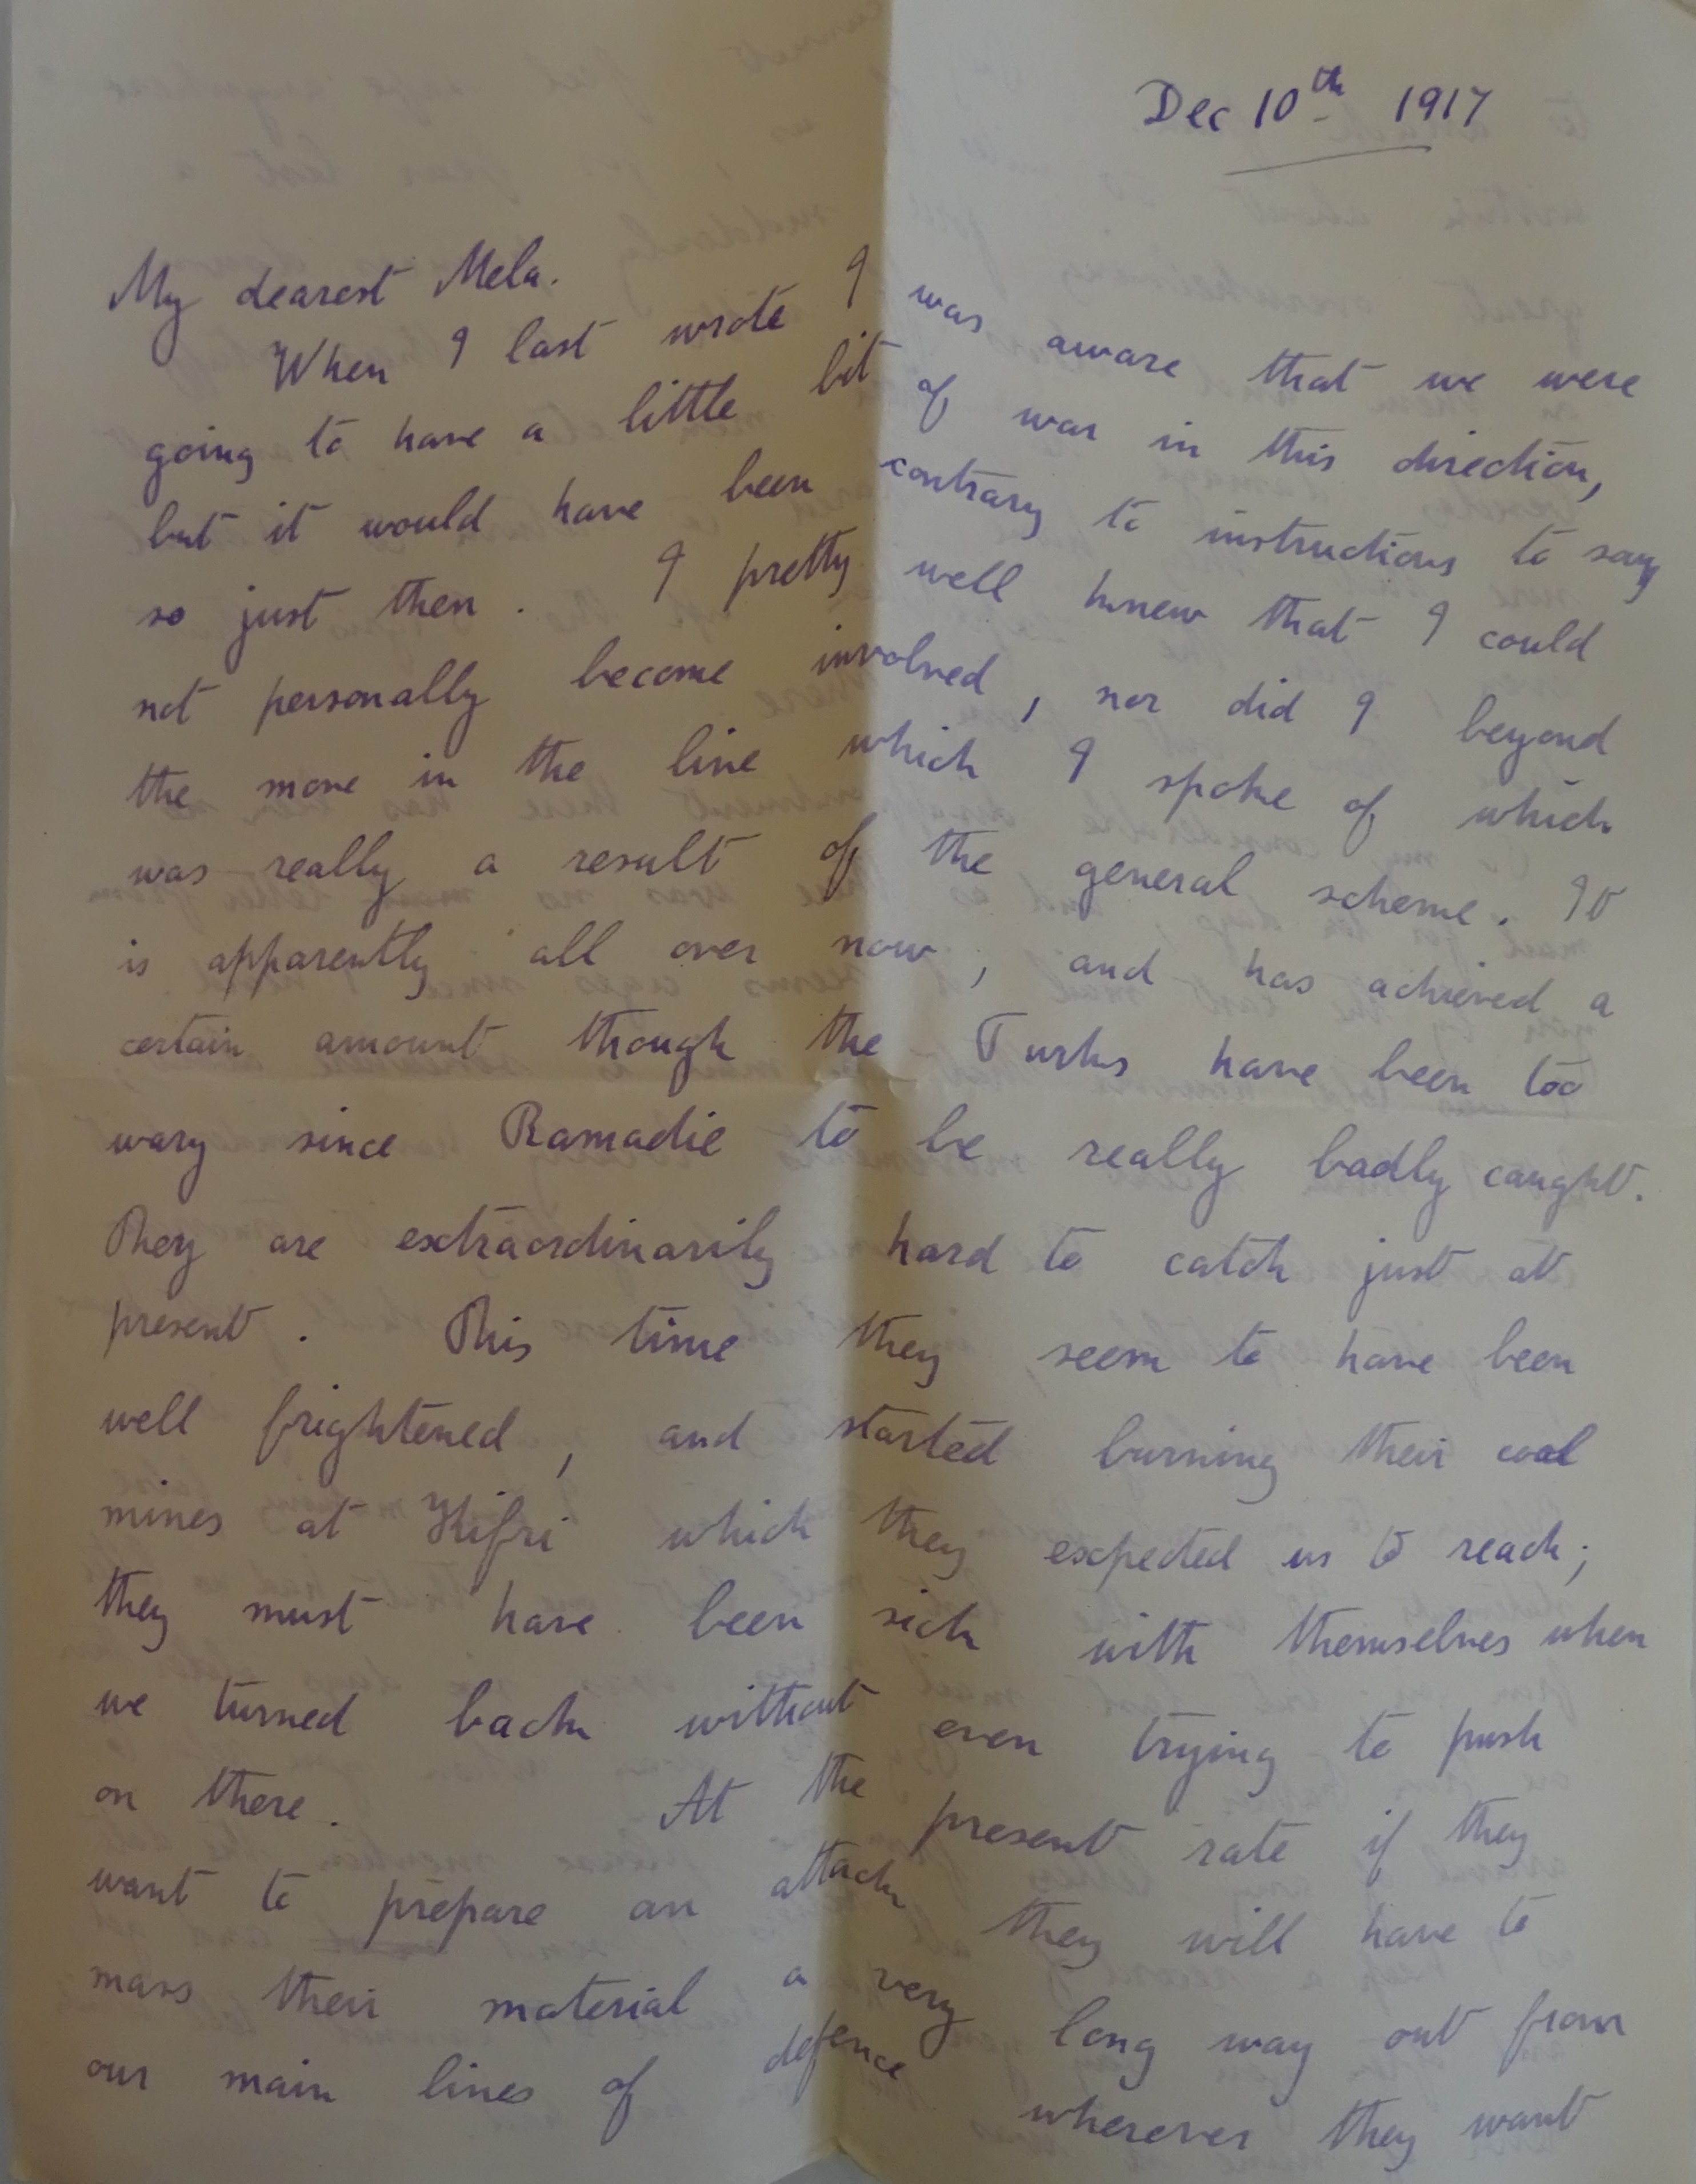 Dec 10th 1917
My dearest Mela.
When I last wrote I was aware that we were
going to have a little bit of war in this direction,
but it would have been contrary to instructions to say
so just then. I pretty well knew that I could
not personally become involved, nor did I beyond
the move in the line which I spoke of which
was really a result of the general scheme. It
is apparently all over now, and has achieved a
certain amount though the Turks have been too
wary since Ramadie to be really badly caught.
They are extraordinarily hard to catch just at
present. This time they seem to have been
well frightened, and started burning their coal
mines at Kifri which they expected us to reach;
they must have been sick with themselves when
we turned back without even trying to push
on there. At the present rate if they
want to prepare an attack they will have to
mass their material a very long way out from
our main lines of defence wherever they want